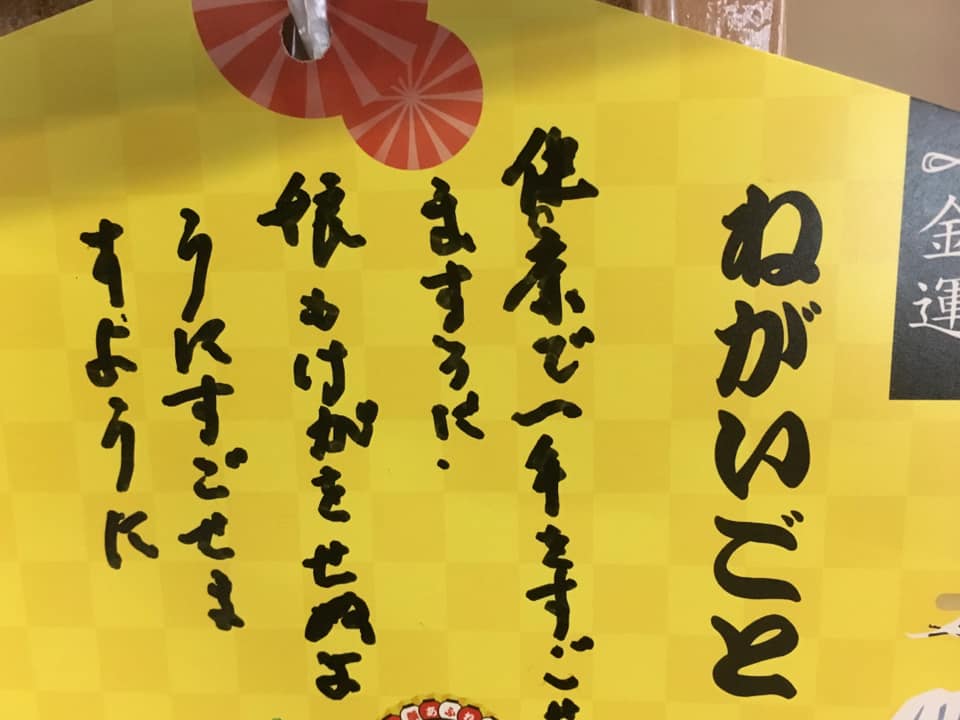 金運
ねがいごと
健康で一年をすごせ
ますように.
娘もけがをせぬよ
うにすごせま
すように
あふれ